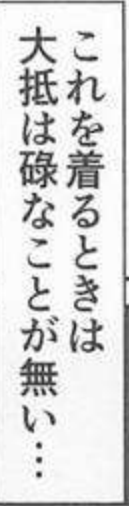 これを着るときは
大抵は碌なことが無い…